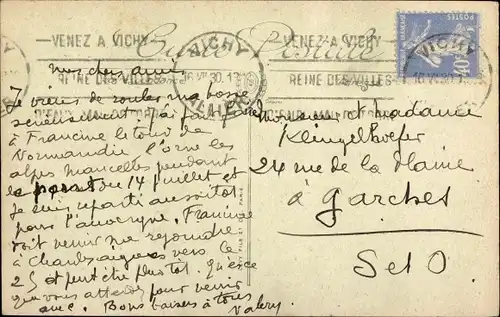 Carte Postale
VENEZ A VICHY
REINE DES VILLES
D'EAUX
VICHY
16 VII 30
ALLIER
VENEZ A VICHY
REINE DES VILLES
D'EAUX
VICHY
16 VII 30
POSTES
40c
mes chers amis
Je viens de rouler ma bosse
sérieusement, j'ai fait faire
à Francine le tour de
Normandie l'orne les
alpes mancelles pendant
le pont du 14 juillet et
Je suis reparti aussitot
pour l'auvergne. Francine
doit venir me rejoindre
à Chaudesaigues vers le
25 et peut être plus tot. Qu'est ce
que vous attendez pour venir
avec. Bons baisers à tous
Valery
Monsieur et madame
Klingelhoefer
24 rue de la Plaine
à Garches
S et O